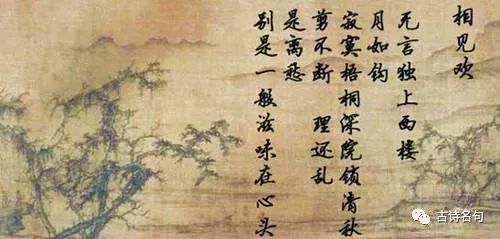 相见欢
无言独上西楼
月如钩
寂寞梧桐深院锁清秋
剪不断 理还乱
是离愁
别是一般滋味在心头
古诗名句